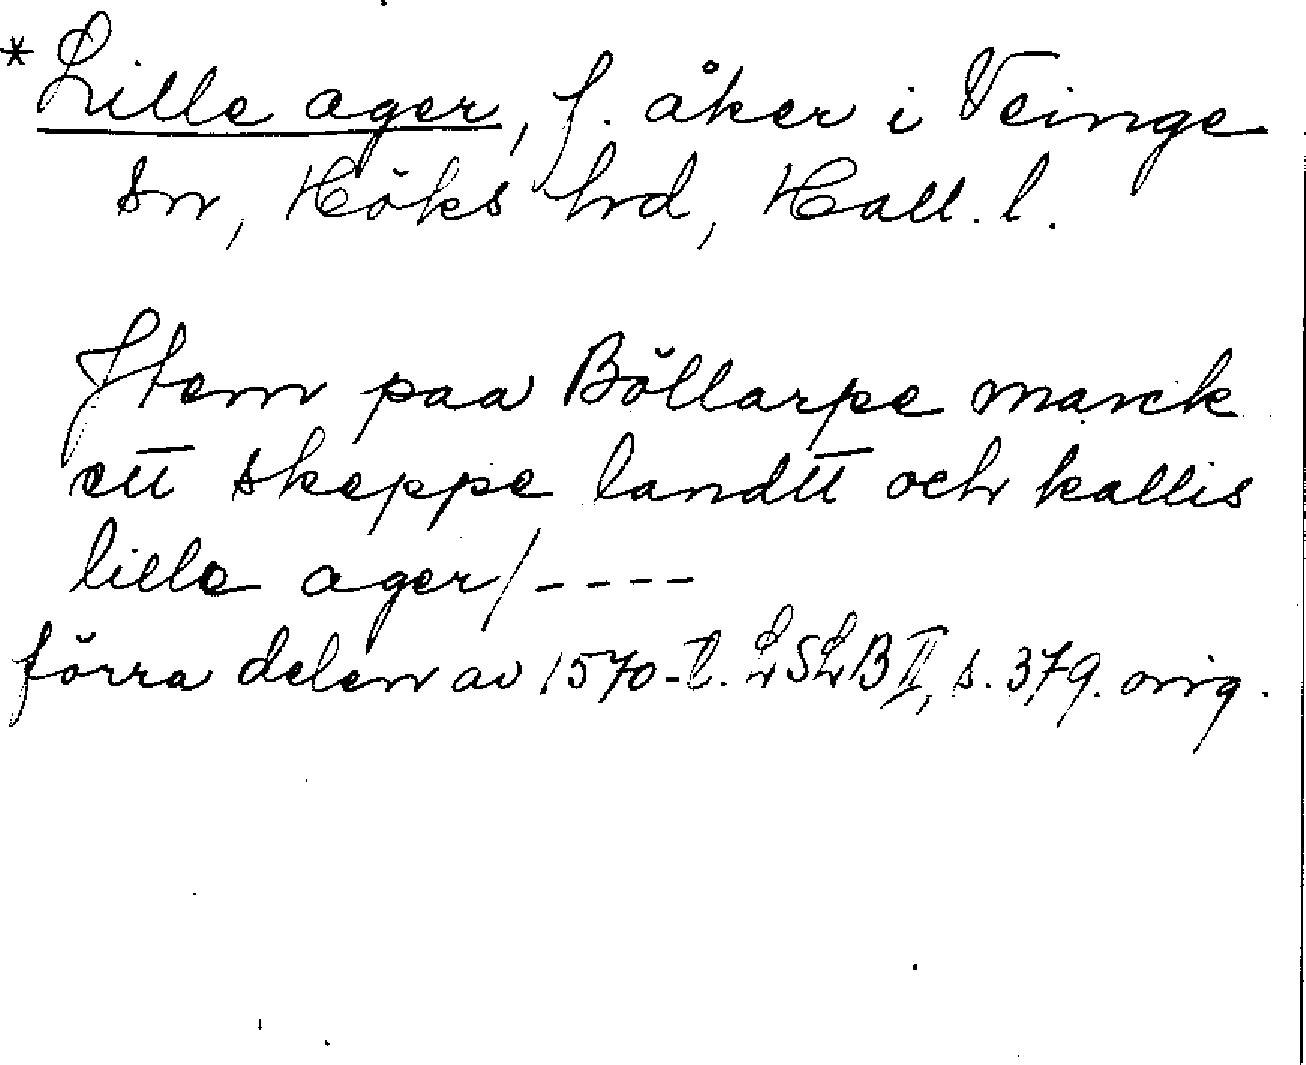 *Lille ager, f. åker i Veinge
sn, Höks hrd, Hall. l.
Jtem paa Böllarpe marck
ett skeppe landtt och kallis
lille ager/----
förra delen av 1570-t. LSLB II, s. 379. orig.